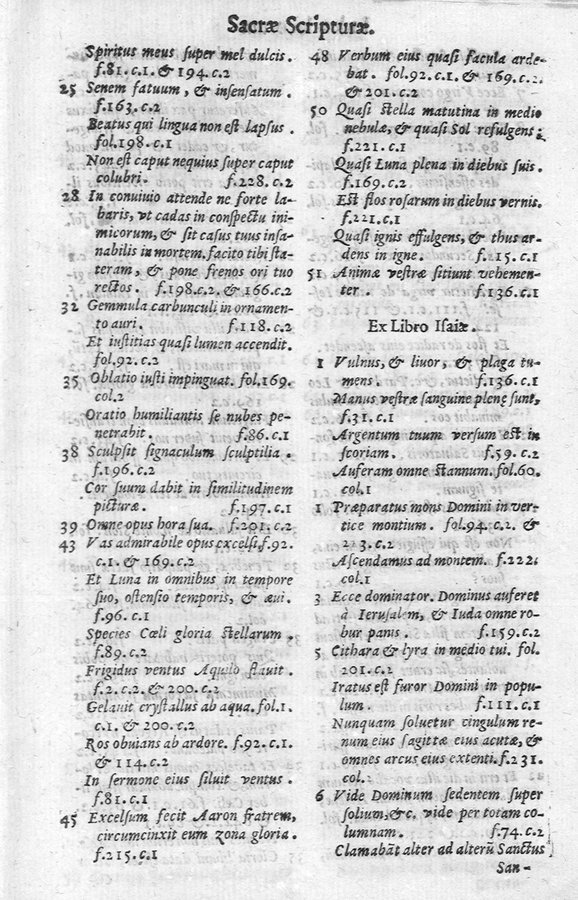 Sacræ Scripturæ.
Spiritus meus super mel dulcis.
f.81.c.1. & 194.c.2
25 Senem fatuum, & insensatum.
f.163.c.2
Beatus qui lingua non est lapsus.
fol.198.c.1
Non est caput nequius super caput
colubri. f.228.c.2
28 In conuiuio attende ne forte la-
baris, vt cadas in conspectu ini-
micorum, & sit casus tuus insa-
nabilis in mortem. facito tibi sta-
teram, & pone frenos ori tuo
rectos. f.198.c.2. & 166.c.2
32 Gemmula carbunculi in ornamen-
to auri. f.118.c.2
Et iustitias quasi lumen accendit.
fol.92.c.2
35 Oblatio iusti impinguat. fol.169.
col.2
Oratio humiliantis se nubes pe-
netrabit. f.86.c.1
38 Sculpsit signaculum sculptilia.
f.196.c.2
Cor suum dabit in similitudinem
picturæ. f.197.c.1
39 Omne opus hora sua. f.201.c.2
43 Vas admirabile opus excelsi. f.92.
c.1. & 169.c.2
Et Luna in omnibus in tempore
suo, ostensio temporis, & æui.
f.96.c.1
Species Cœli gloria stellarum.
f.89.c.2
Frigidus ventus Aquilo flauit.
f.2.c.2. & 200.c.2
Gelauit crystallus ab aqua. fol.1.
c.1. & 200.c.2
Ros obuians ab ardore. f.92.c.1.
& 114.c.2
In sermone eius siluit ventus.
f.81.c.1
45 Excelsum fecit Aaron fratrem,
circumcinxit eum zona gloria.
f.215.c.1
48 Verbum eius quasi facula arde-
bat. fol.92.c.1. & 169.c.2.
& 201.c.2
50 Quasi stella matutina in medio
nebulæ, & quasi Sol refulgens;
f.221.c.1
Quasi Luna plena in diebus suis.
f.169.c.2
Est flos rosarum in diebus vernis.
f.221.c.1
Quasi ignis effulgens, & thus ar-
dens in igne. f.215.c.1
51 Animæ vestræ sitiunt vehemen-
ter. f.136.c.1
Ex Libro Isaiæ.
1 Vulnus, & liuor, & plaga tu-
mens. f.136.c.1
Manus vestræ sanguine plenę sunt,
f.31.c.1
Argentum tuum versum est in
scoriam. f.59.c.2
Auferam omne stannum. fol.60.
col.1
1 Præparatus mons Domini in ver-
tice montium. fol.94.c.2. &
223.c.2
Ascendamus ad montem. f.222.
col.1
3 Ecce dominator. Dominus auferet
à Ierusalem, & Iuda omne ro-
bur panis. f.159.c.2
5 Cithara & lyra in medio tui. fol.
201.c.2
Iratus est furor Domini in popu-
lum. f.111.c.1
Nunquam soluetur cingulum re-
num eius sagittæ eius acutæ, &
omnes arcus eius extenti. f.231.
col.2
6 Vide Dominum sedentem super
solium, &c. vide per totam co-
lumnam. f.74.c.2
Clamabāt alter ad alterū Sanctus
San-